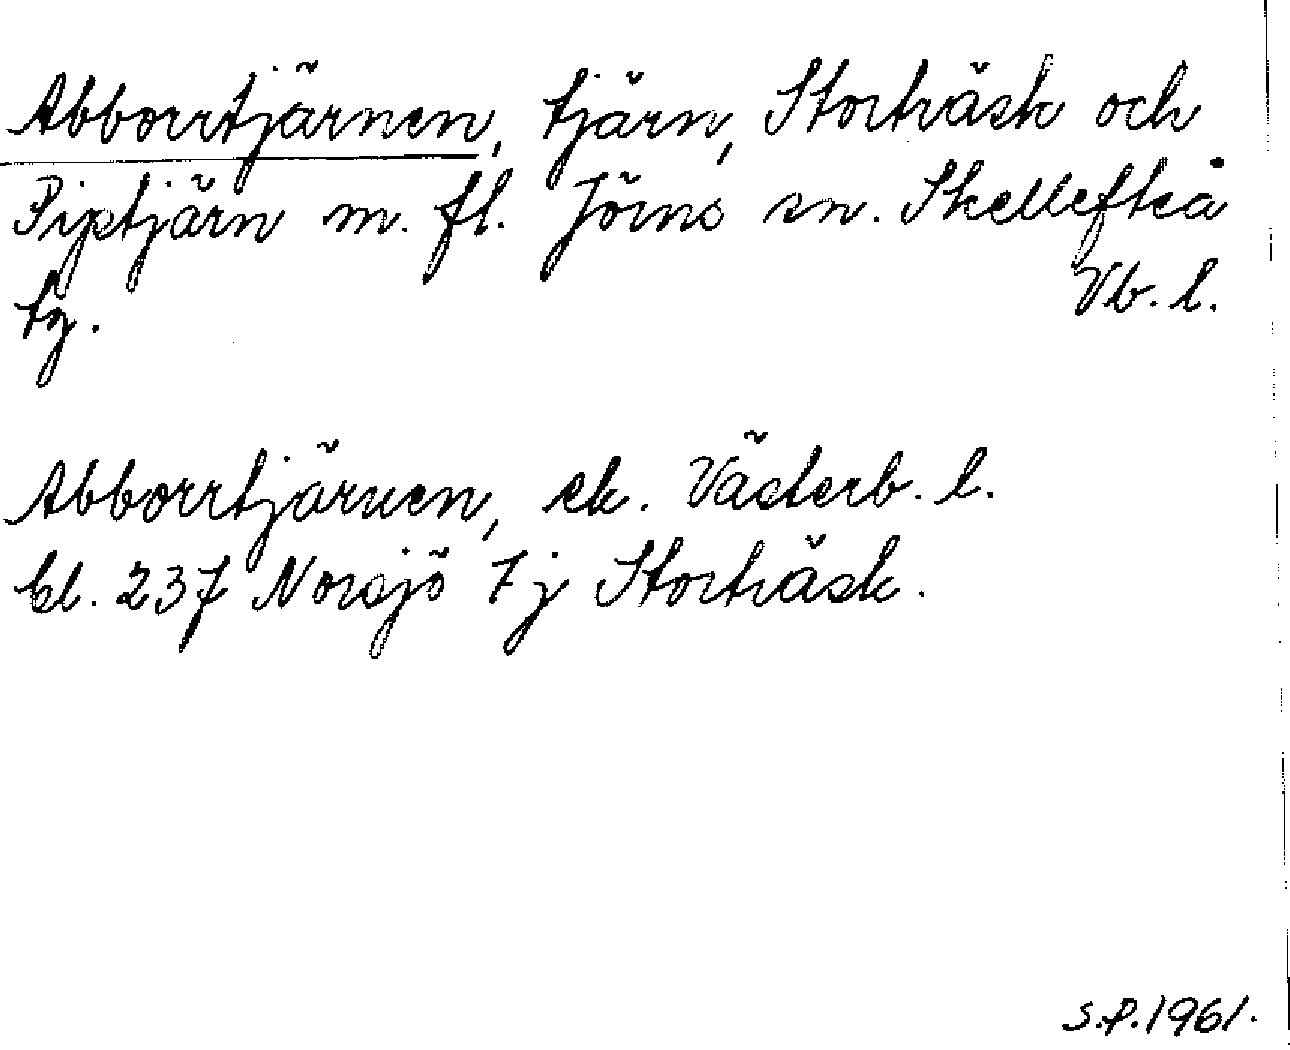 Abborrtjärnen, tjärn, Storträsk och
Pijptjärn m. fl. Jörns sn. Skellefteå
tg. Vb. l.
Abborrtjärnen, ek. Västerb. l.
bl. 237 Norsjö 7 j Storträsk.
S.P. 1961.